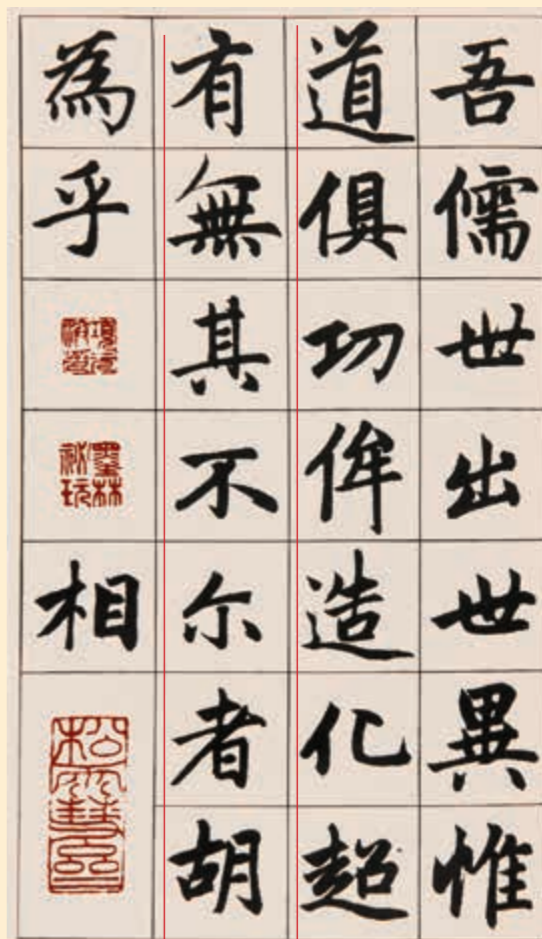 吾儒世出世異惟
道俱功侔造化超
有無其不尔者胡
為乎
墨林
相